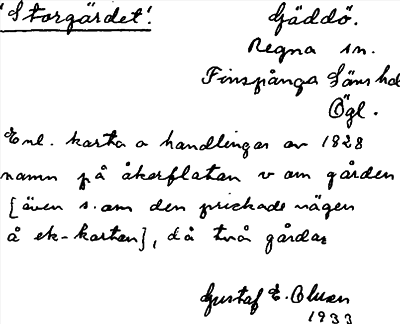 'Storgärdet'.
Gäddö.
Regna sn.
Finspånga Läns hd
Ögl.
Enl. karta o handlingar av 1828
namn på åkerflatan v om gården
[även s. om den prickade vägen
å ek-kartan], då två gårdar
Gustaf E. Olsson
1933